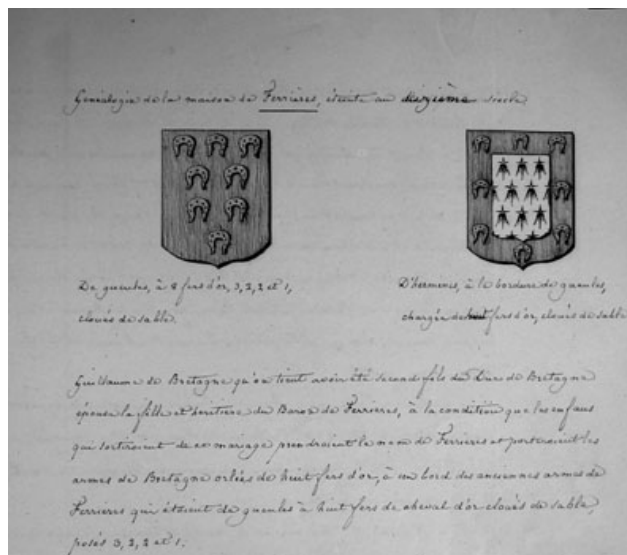 Généalogie de la maison de Ferrières, éteinte au siècle.
De gueules, à 8 fers d'or, 3, 2, 2 et 1,
cloués de sable.
D'hermines, à la bordure de gueules,
chargée de huit fers d'or, cloués de sable
Guillaume de Bretagne qu'on tient avoir été second fils du Duc de Bretagne
épousa la fille et héritière du Baron de Ferrières, à la condition que les enfans
qui sortiroient de ce mariage prendroient le nom de Ferrières et porteroient les
armes de Bretagne orlées de huit fers d'or, à un bord des anciennes armes de
Ferrières qui étoient de gueules à huit fers de cheval d'or cloués de sable,
posés 3, 2, 2 et 1.